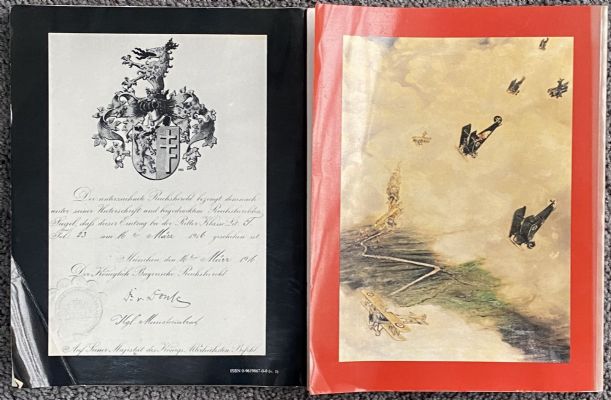 Der unterzeichnete Reichsherold bezeugt demnach
unter seiner Unterschrift und beigedrucktem Reichsherolden
Siegel, daß dieser Eintrag bei der Ritter Klasse Lit. T
Fol. 23 am 16ten März 1916 geschehen ist
München, den 16ten März 1916
Der Königlich Bayerische Reichsherold
Kgl. Ministerialrat
Auf Seiner Majestät des Königs Allerhöchsten Befehl
ISBN 0-9619867-0-0